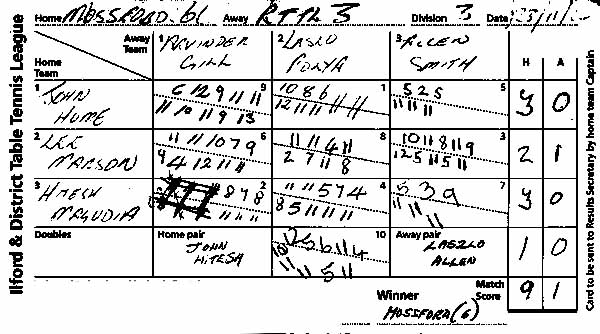 Ilford & District Table Tennis League
Home MOSSFORD 6 Away RTTR 3 Division 3 Date
Away Team 1 ARVINDER GILL 2 LASLO POLYA 3 ALLEN SMITH H A
Home Team
1 JOHN HUME 9 1 5 3 0
6 12 9 11 11 10 8 6 5 2 5
11 10 11 9 13 12 11 11 11 11 11 11
2 LEE MARSDON 6 8 3 2 1
11 11 10 7 9 11 11 4 11 10 11 8 11 9
9 4 12 11 11 2 7 11 8 12 5 11 5 11
3 HITESH MAGUDIA 2 4 7 3 0
8 7 8 11 11 5 7 4 5 3 9
11 11 11 8 5 11 11 11 11 11 11
Doubles Home pair 10 Away pair
JOHN HITESH LASZLO ALLEN 1 0
Winner Match Score 9 1
MOSSFORD (6)
Card to be sent to Results Secretary by home team Captain